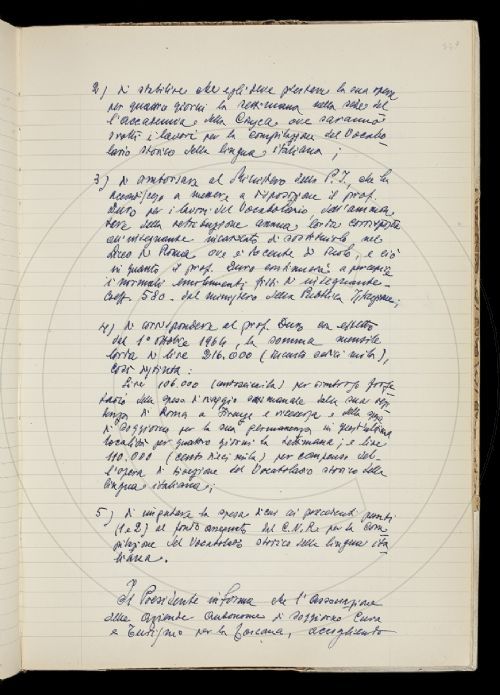 2) di stabilire che egli deve prestare la sua opera
per quattro giorni la settimana nella sede del-
l'Accademia della Crusca ove saranno
svolti i lavori per la compilazione del Vocabo-
lario storico della lingua italiana;
3) di rimborsare al Ministero della P.I., che ha
a mettere a disposizione il prof.
Duro per i lavori del Vocabolario dell'ammon-
tare della retribuzione annua lorda corrisposta
all'insegnante incaricato di sostituirlo nel
Liceo di Roma ove è docente di ruolo, e ciò
in quanto il prof. Duro continuerà a percepire
i normali emolumenti fissi di insegnante-
Coeff. 580- del Ministero della Pubblica Istruzione;
4) di corrispondere al prof. Duro con effetto
dal 1° ottobre 1964, la somma mensile
lorda di lire 216.000 (duecentosedicimila),
così distinta:
Lire 106.000 (centoseimila) per rimborso forfe-
tario della spesa di viaggio settimanale dalla sua resi-
denza di Roma a Firenze e viceversa e della spesa
di soggiorno per la sua permanenza in quest'ultima
località per quattro giorni la settimana; e lire
110.000 (centodiecimila) per compenso del-
l'opera di direzione del Vocabolario storico della
lingua italiana;
5) di imputare la spesa di cui ai precedenti punti
(1 e 2) al fondo assegnato dal C.N.R. per la com-
pilazione del Vocabolario storico della lingua ita-
liana.
Il Presidente informa che l'Associazione
delle aziende autonome di soggiorno cura
e turismo per la Toscana, accogliendo